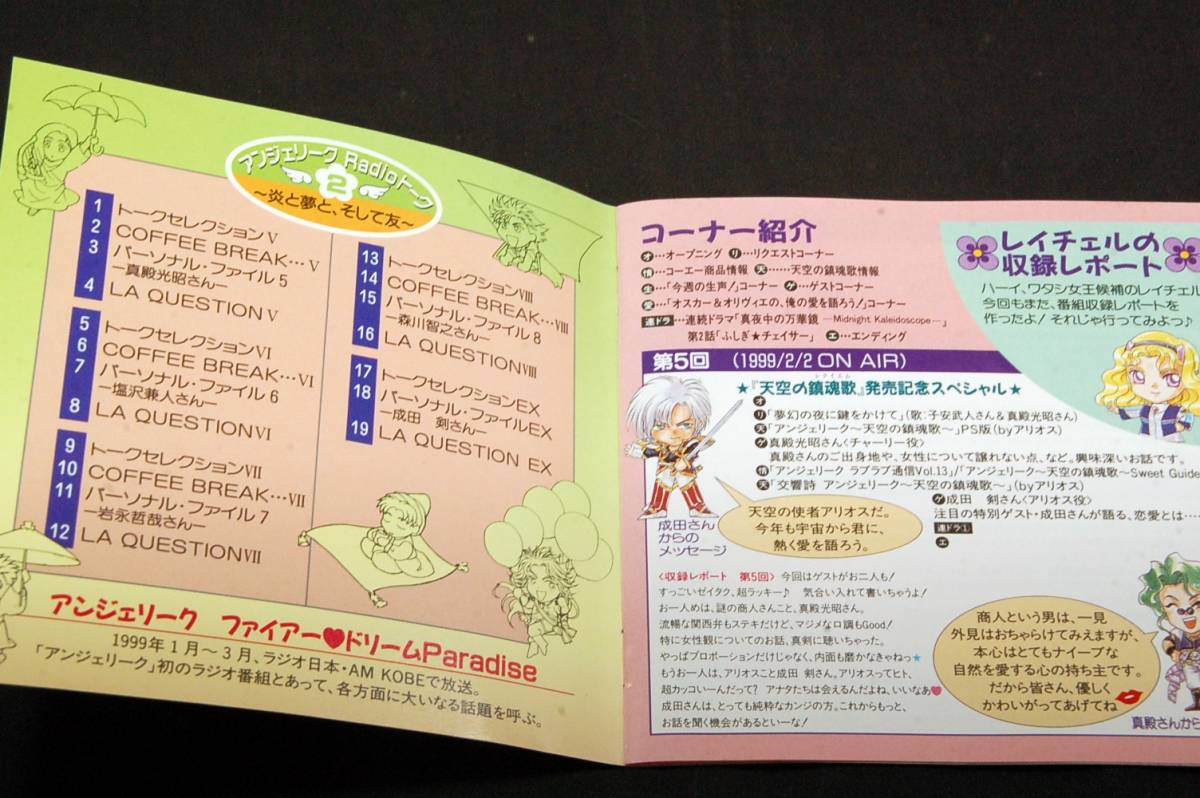 アンジェリーク Radioトーク
2
〜炎と夢と、そして友〜
1 トークセレクションV
2 COFFEE BREAK…V
3 パーソナル・ファイル 5
─真殿光昭さん─
4 LA QUESTION V
5 トークセレクションVI
6 COFFEE BREAK…VI
7 パーソナル・ファイル 6
─塩沢兼人さん─
8 LA QUESTION VI
9 トークセレクションVII
10 COFFEE BREAK…VII
11 パーソナル・ファイル 7
─岩永哲哉さん─
12 LA QUESTION VII
13 トークセレクションVIII
14 COFFEE BREAK…VIII
15 パーソナル・ファイル 8
─森川智之さん─
16 LA QUESTION VIII
17 トークセレクションEX
18 パーソナル・ファイルEX
─成田 剣さん─
19 LA QUESTION EX
アンジェリーク ファイアー♥ドリームParadise
1999年1月〜3月、ラジオ日本・AM KOBEで放送。
「アンジェリーク」初のラジオ番組とあって、各方面に大いなる話題を呼ぶ。
コーナー紹介
オ…オープニング リ…リクエストコーナー
情…コーエー商品情報 天……天空の鎮魂歌情報
生…「今週の生声!」コーナー ゲ…ゲストコーナー
愛…「オスカー&オリヴィエの、俺の愛を語ろう!」コーナー
連ドラ…連続ドラマ「真夜中の万華鏡 ―Midnight Kaleidoscope―」
第2話「ふしぎ★チェイサー」 エ…エンディング
レイチェルの
収録レポート
ハーイ、ワタシ女王候補のレイチェル
今回もまた、番組収録レポートを
作ったよ! それじゃ行ってみよっ♪
第5回 (1999/2/2 ON AIR)
★『天空の鎮魂歌』発売記念スペシャル★
レクイエム
オ
リ「夢幻の夜に鍵をかけて」(歌:子安武人さん&真殿光昭さん)
天「アンジェリーク〜天空の鎮魂歌〜」PS版(byアリオス)
ゲ 真殿光昭さん〈チャーリー役〉
真殿さんのご出身地や、女性について譲れない点、など。興味深いお話です。
情「アンジェリーク ラブラブ通信Vol.13」/「アンジェリーク〜天空の鎮魂歌〜Sweet Guide
天「交響詩 アンジェリーク〜天空の鎮魂歌〜」(byアリオス)
ゲ 成田 剣さん〈アリオス役〉
注目の特別ゲスト・成田さんが語る、恋愛とは……
連ドラ①
エ
天空の使者アリオスだ。
今年も宇宙から君に、
熱く愛を語ろう。
成田さん
からの
メッセージ
〈収録レポート 第5回〉 今回はゲストがお二人も!
すっごいゼイタク、超ラッキー♪ 気合い入れて書いちゃうよ!
お一人めは、謎の商人さんこと、真殿光昭さん。
流暢な関西弁もステキだけど、マジメな口調もGood!
特に女性観についてのお話、真剣に聴いちゃった。
やっぱプロポーションだけじゃなく、内面も磨かなきゃねっ★
もうお一人は、アリオスこと成田 剣さん。アリオスってヒト、
超カッコいーんだって? アナタたちは会えるんだよね、いいなあ♥
成田さんは、とっても純粋なカンジの方。これからもっと、
お話を聞く機会があるといーな!
商人という男は、一見
外見はおちゃらけてみえますが、
本心はとてもナイーブな
自然を愛する心の持ち主です。
だから皆さん、優しく
かわいがってあげてね
真殿さんから